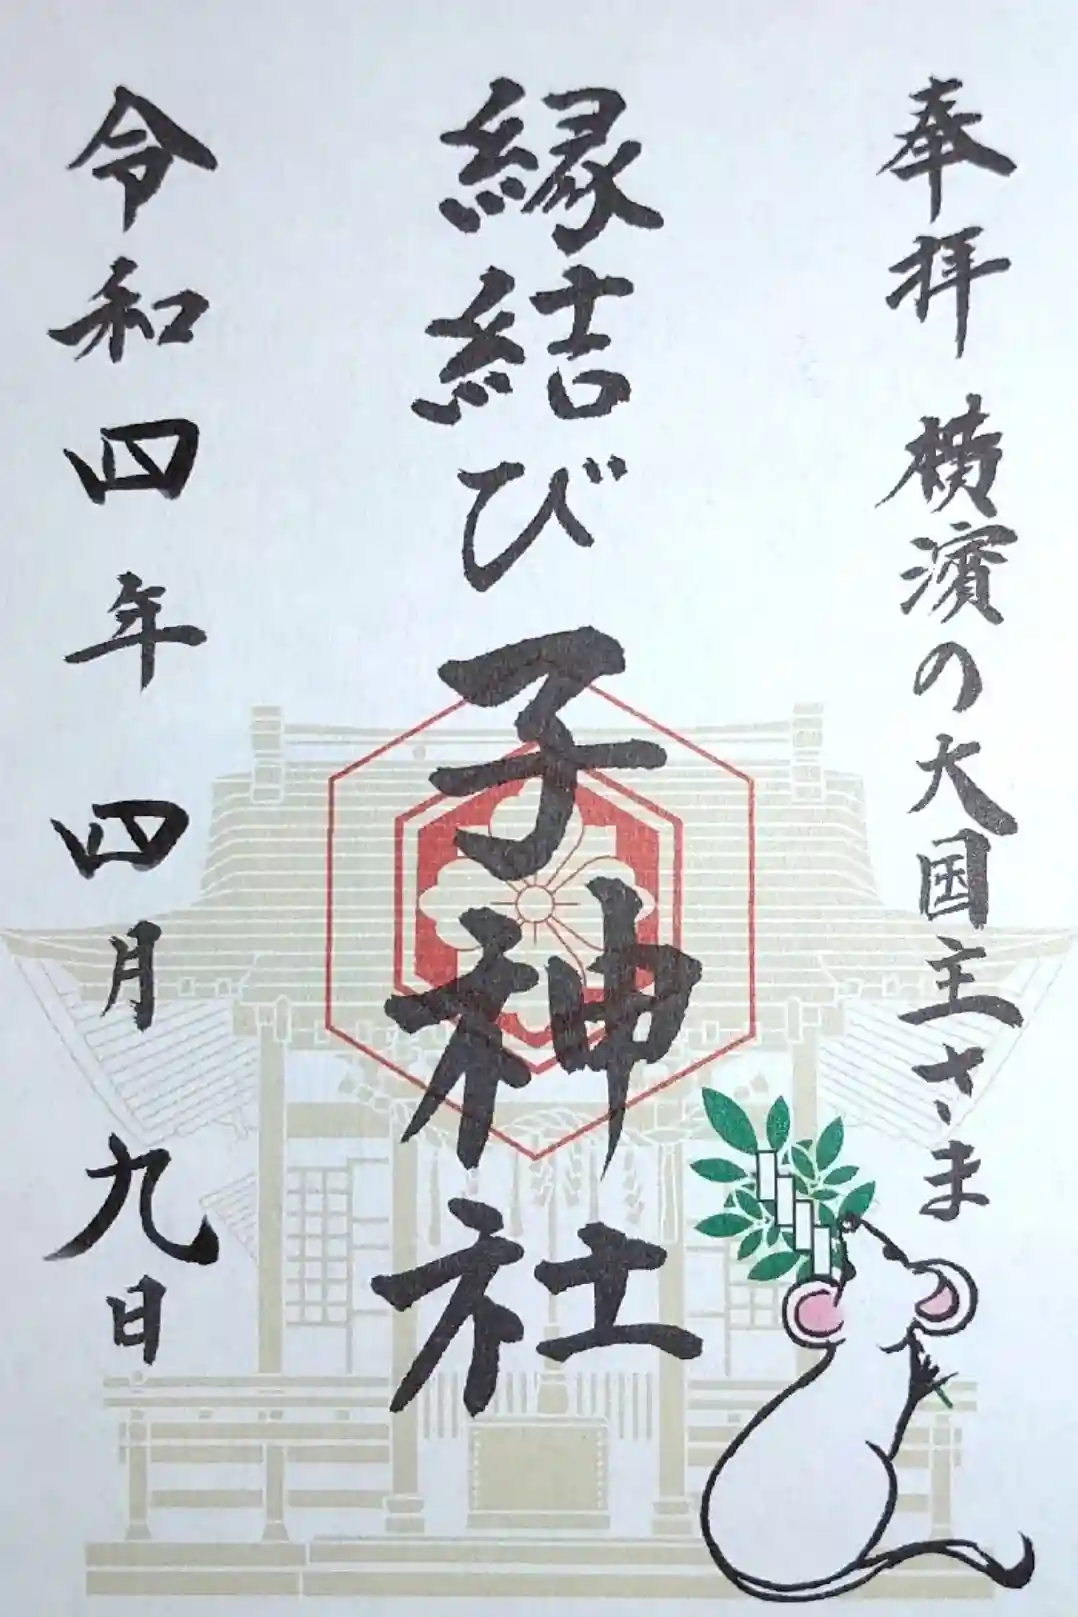 奉拝 横濱の大国主さま
縁結び 子神社
令和四年 四月 九日